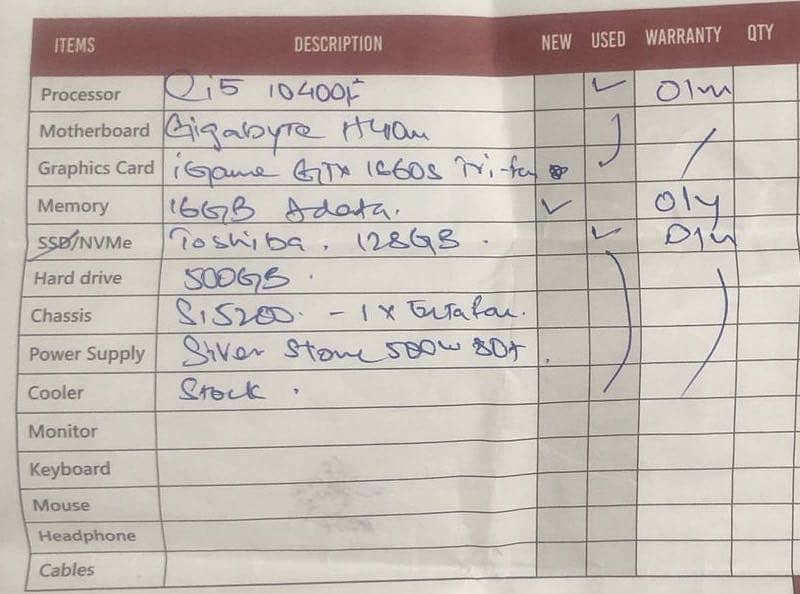 ITEMS DESCRIPTION NEW USED WARRANTY QTY
Processor i5 10400F ✓ 01m
Motherboard Gigabyte H410m
Graphics Card iGame GTX 1660S Tri-fan
Memory 16GB Adata. ✓ 01y
SSD/NVMe Toshiba, 128GB. ✓ 01m
Hard drive 500GB.
Chassis Si5200. - 1x Extra fan.
Power Supply Silver Stone 500w 80+
Cooler Stock.
Monitor
Keyboard
Mouse
Headphone
Cables